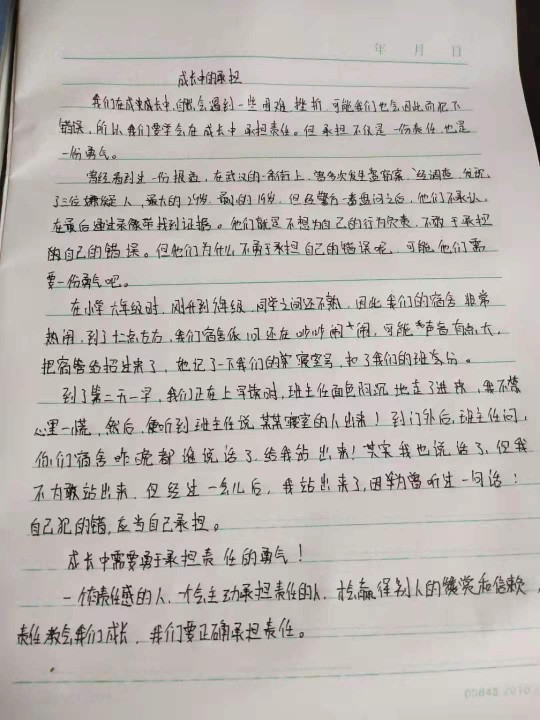 年 月 日
成长中的承担
我们在成长中,会遇到一些困难挫折,可能我们也会因此而犯下
错误,所以我们要学会在成长中承担责任。但承担不仅是一份责任,也是
一份勇气。
曾经看到过一份报道,在武汉的一条街上,曾多次发生盗窃案,经调查,发现
了三位嫌疑人,最大的24岁,最小的19岁,但经警方一番盘问之后,他们不承认,
在最后通过录像带找到证据。他们就是不想为自己的行为负责,不敢于承担
自己的错误。但他们为什么不勇于承担自己的错误呢,可能他们需
要一份勇气吧。
在小学六年级时,刚升到六年级,同学之间还不熟,因此我们的宿舍非常
热闹,到了十二点左右,我们宿舍依旧还在吵吵闹闹,可能声音有点大,
把宿管给招过来了,她记了一下我们的寝室号,扣了我们的班级分。
到了第二天一早,我们正在上早读时,班主任面色阴沉地走了进来,我不禁
心里一慌,然后,便听到班主任说某某寝室的人出来!到门外后,班主任问,
你们宿舍昨晚都谁说话了,给我站出来!其实我也说话了,但我
不敢站出来,但经过一会儿后,我站出来了,因为曾听过一句话:
自己犯的错,应当自己承担。
成长中需要勇于承担责任的勇气!
一个有责任感的人,才会主动承担责任的人,才会赢得别人的赞赏和信赖,
责任教会我们成长,我们要正确承担责任。